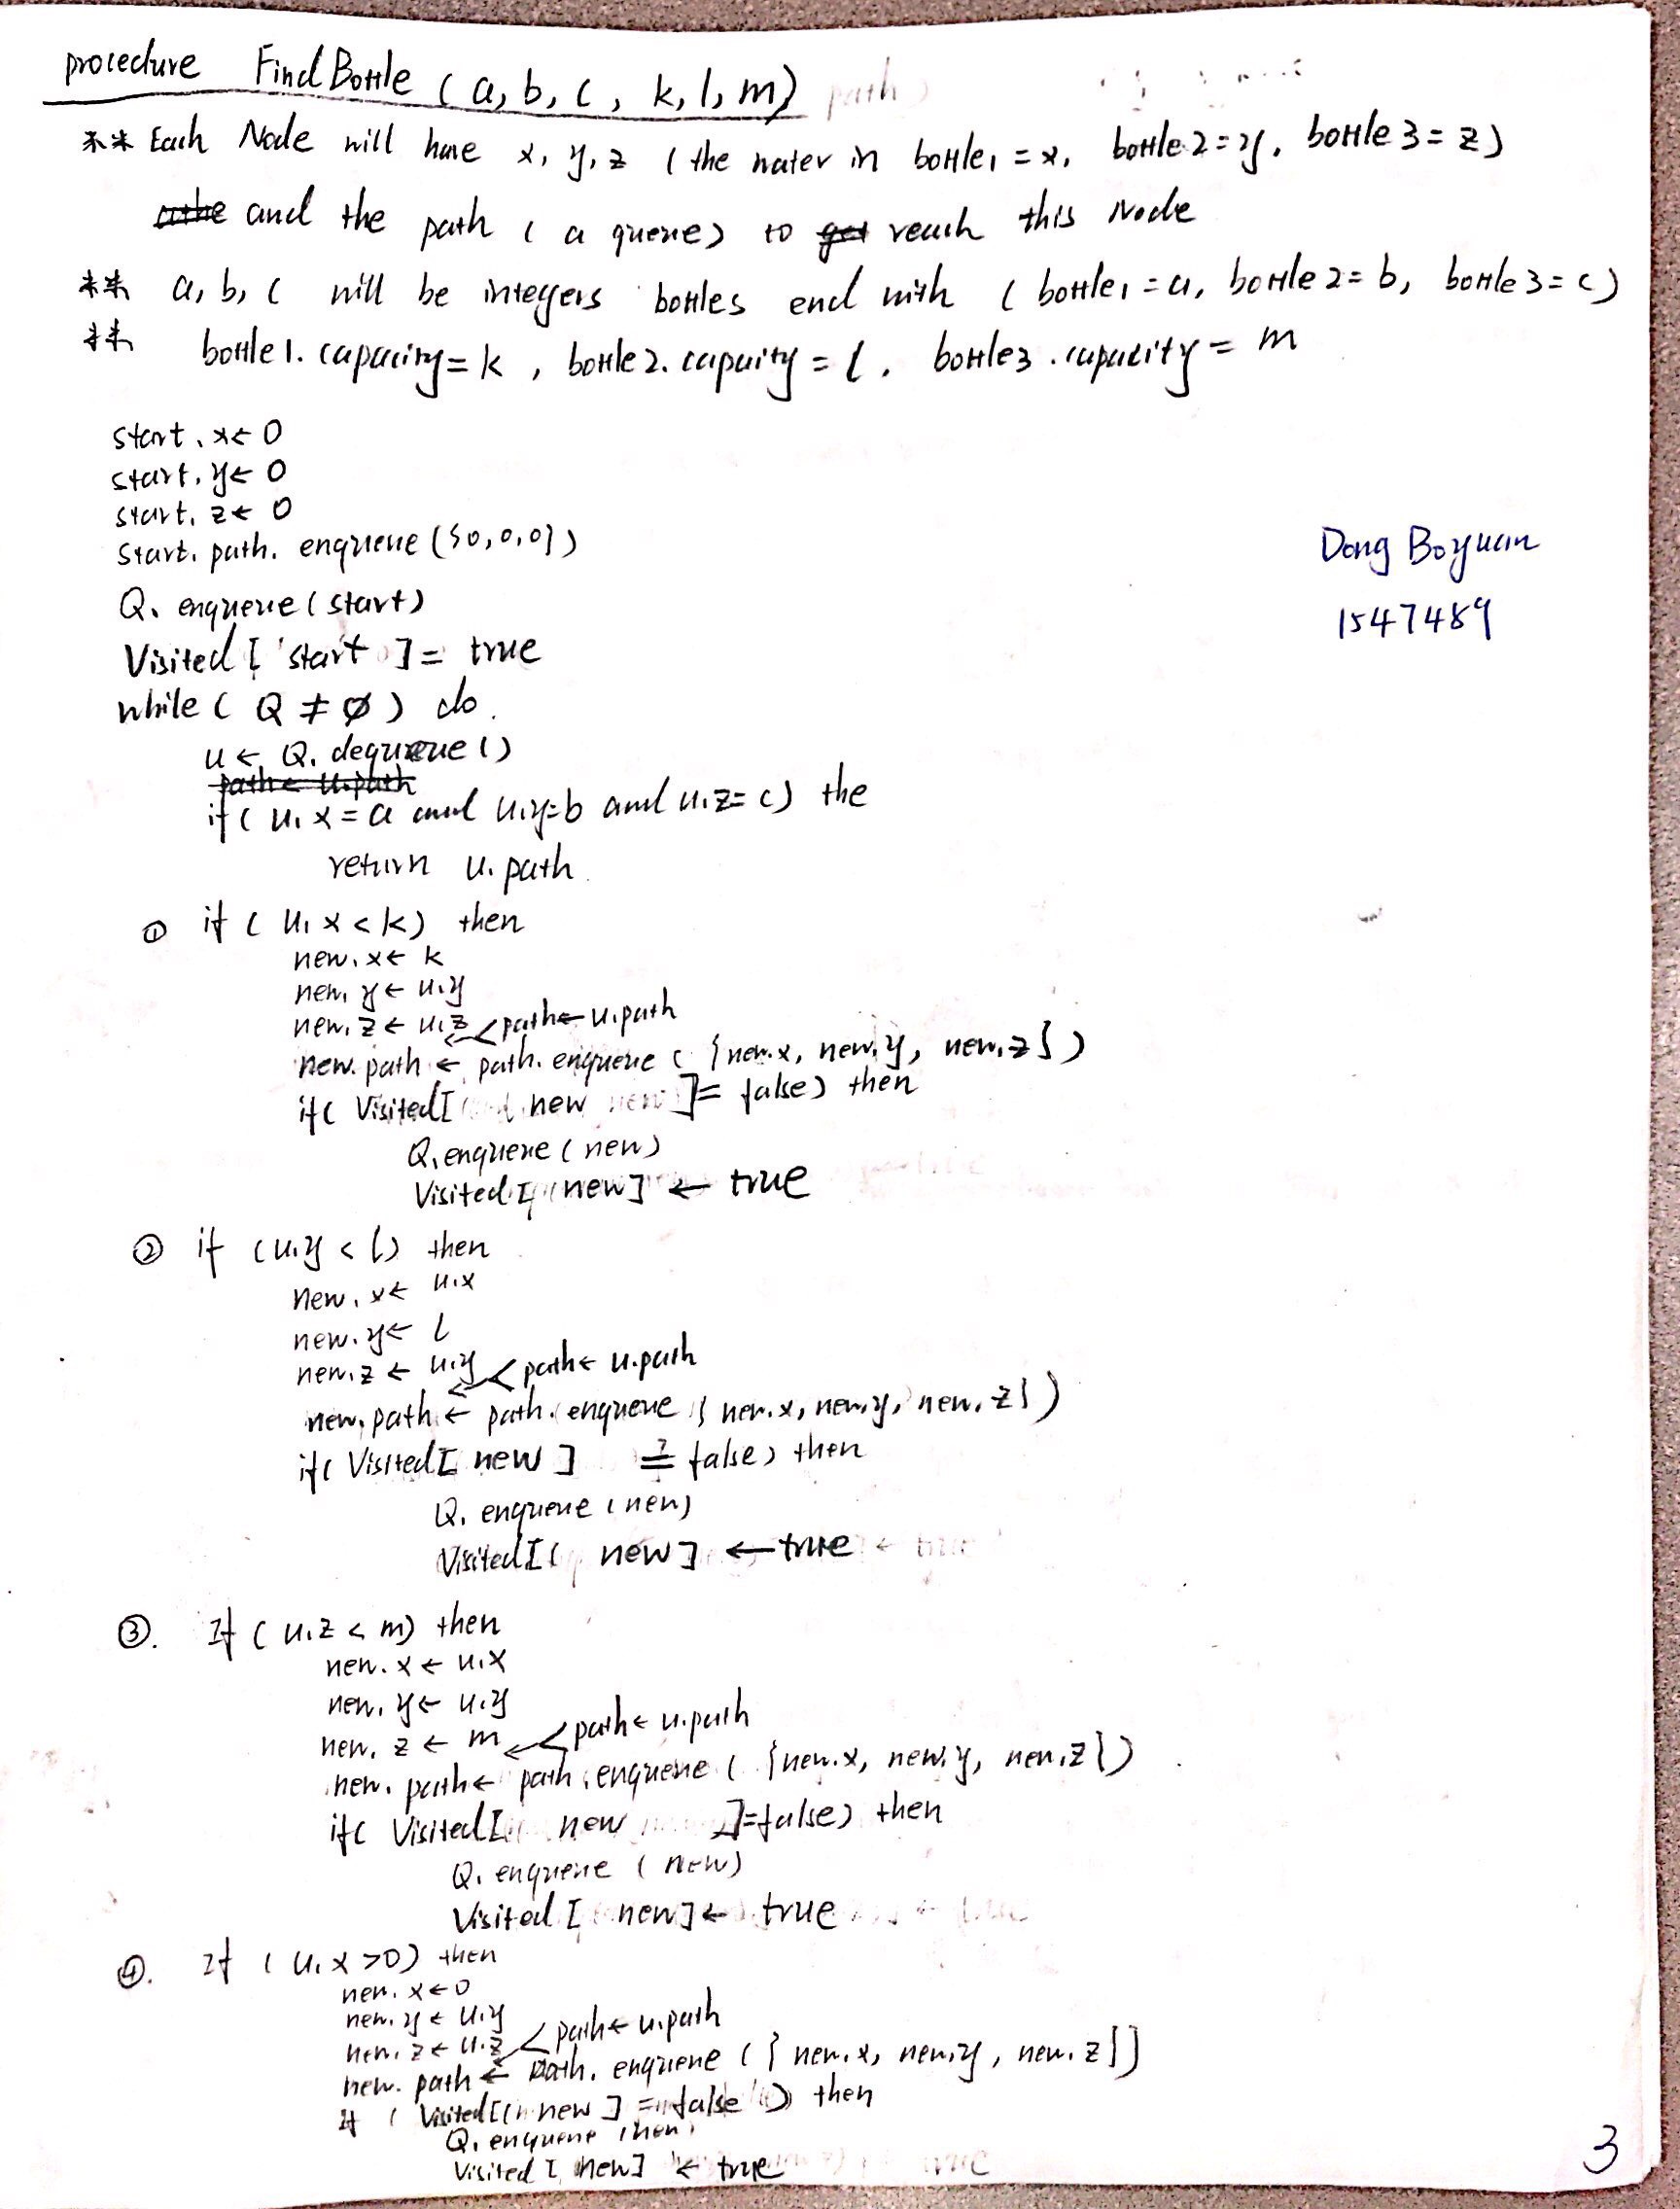 procedure FindBottle (a, b, c, k, l, m)
** Each Node will have x, y, z (the water in bottle1 = x, bottle2 = y, bottle3 = z)
and the path (a queue) to get reach this Node
** a, b, c will be integers bottles end with (bottle1 = a, bottle2 = b, bottle3 = c)
** bottle1. capacity = k, bottle2. capaity = l. bottle3. capacity = m
start. x ← 0
start. y ← 0
start. z ← 0
start. path. enqueue ({0,0,0})
Dong Boyuan
Q. enqueue (start)
1547489
Visited [ start ] = true
while ( Q ≠ ∅ ) do.
u ← Q. dequeue ()
path ← u.path
if ( u. x = a and u.y = b and u.z = c) the
return u. path
① if ( u. x < k) then
new. x ← k
new. y ← u.y
new. z ← u.z < path ← u.path
new. path ← path. enqueue ( {new.x, new.y, new.z} )
if ( Visited [ new ] = false) then
Q. enqueue (new)
Visited [ new] ← true
② if (u.y < l) then
new. x ← u.x
new. y ← l
new. z ← u.y < path ← u.path
new. path ← path. enqueue { new.x, new.y, new. z} )
if ( Visited [ new ] = false) then
Q. enqueue (new)
Visited [( new] ← true
③. If ( u.z < m) then
new. x ← u.x
new. y ← u.y
new. z ← m < path ← u.path
new. path ← path. enqueue ( {new.x, new.y, new.z} )
if ( Visited [ new ] = false) then
Q. enqueue (new)
Visited [ new] ← true
④. If ( u. x > 0) then
new. x ← 0
new. y ← u.y
new. z ← u.z < path ← u.path
new. path ← path. enqueue ( { new.x, new.y, new. z})
If ( Visited [ new ] = false ) then
Q. enqueue (new)
Visited [ new] ← true
3